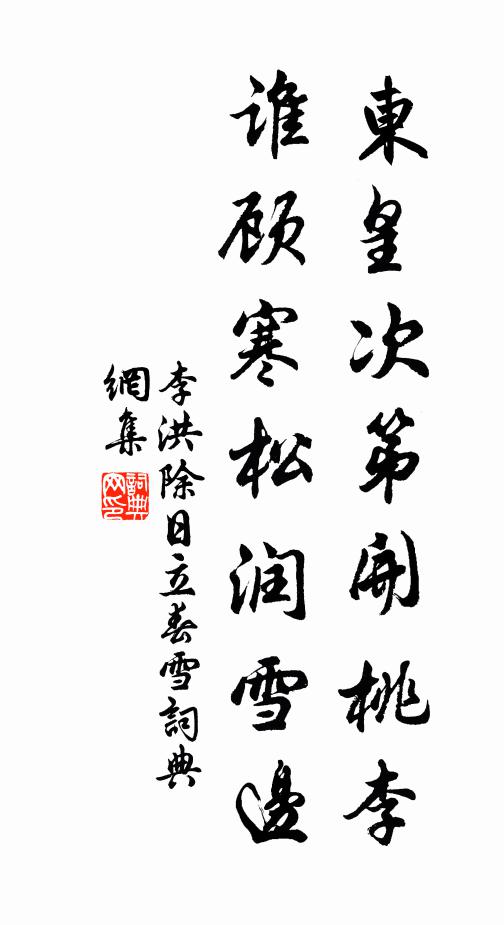 東皇次第開桃李
谁顾寒松润雪邊
李洪除日立春雪詞典
網集
詞典
网印